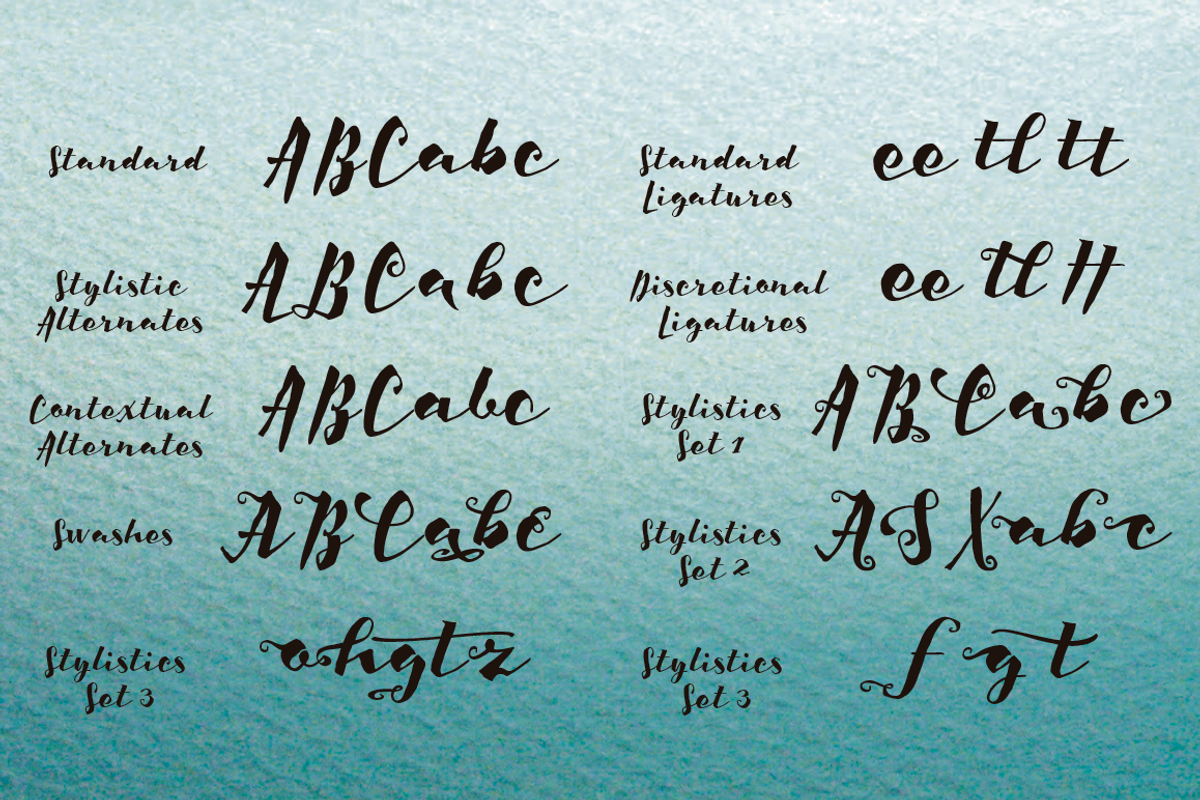 Standard
ABCabc
Stylistic
Alternates
ABCabc
Contextual
Alternates
ABCabc
Swashes
ABCabc
Stylistics
Set 3
ohgtz
Standard
Ligatures
ee tl tt
Discretional
Ligatures
ee tl tt
Stylistics
Set 1
ABCabc
Stylistics
Set 2
ASXabc
Stylistics
Set 3
f g t